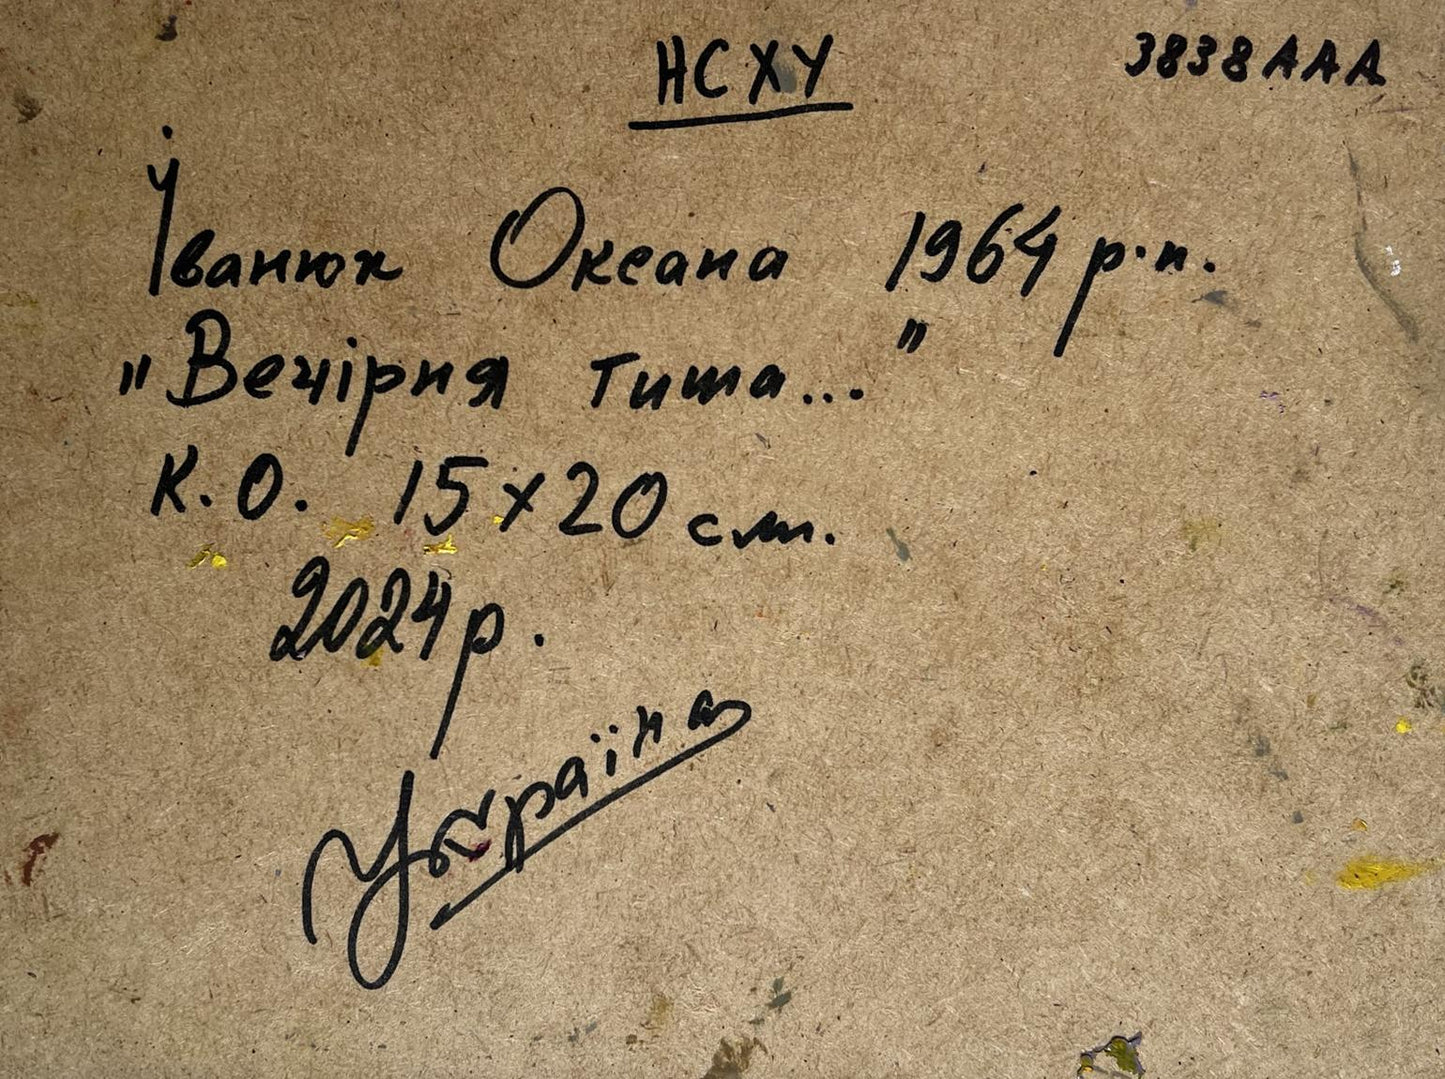 НСХУ 3838ААА
Іванюк Оксана 1964 р.н.
"Вечірня тиша..."
К.О. 15х20 см.
2024р.
Україна